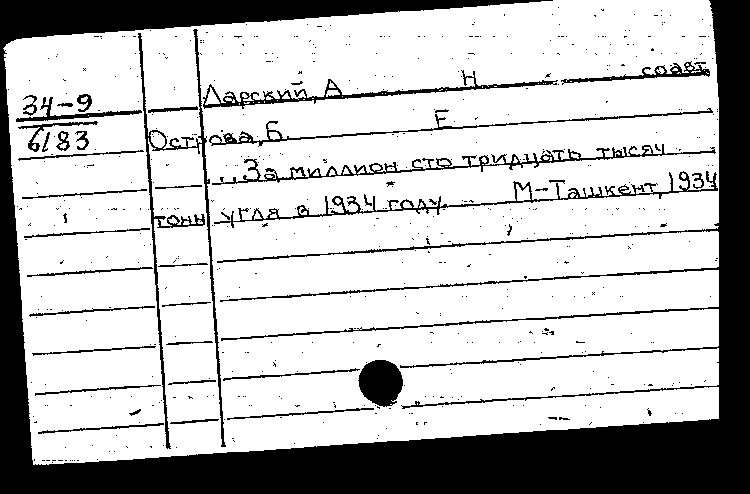 Ларский, А Н соавт.
34-9
6183
Острова, Б. Е
...За миллион сто тридцать тысяч
тонн угля в 1934 году. М-Ташкент, 1934